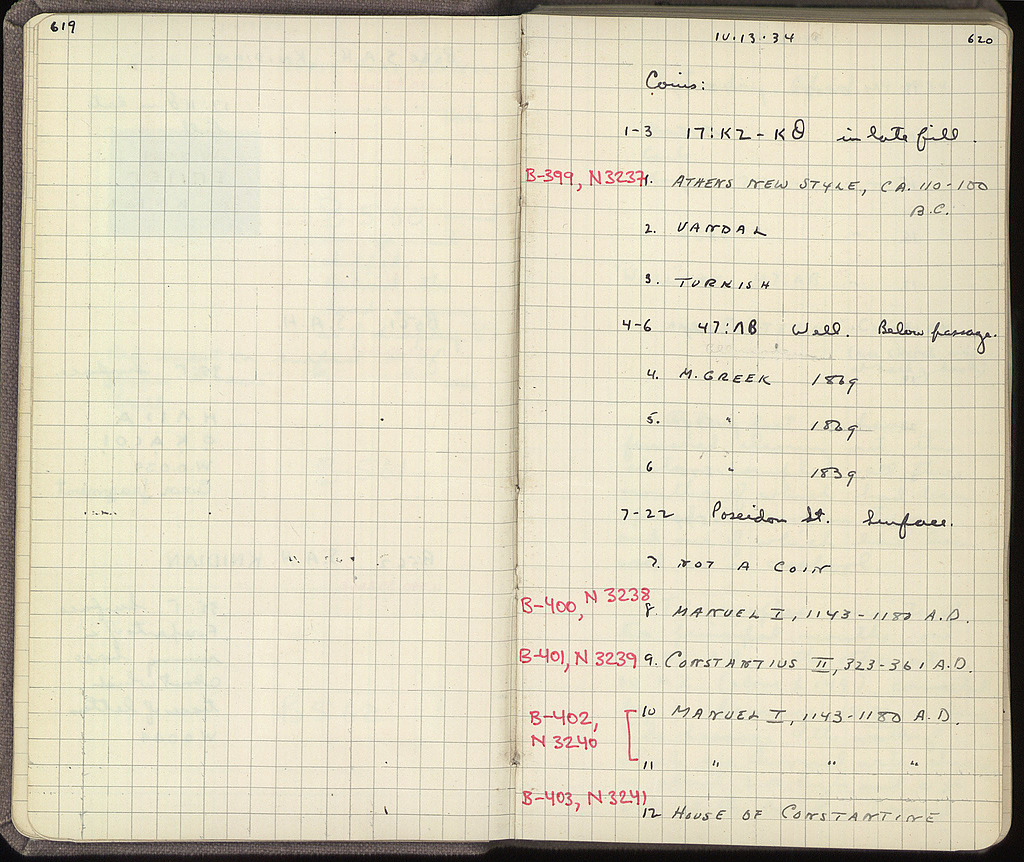 619
IV.13.34 620
Coins:
1-3 17:KZ-KΘ in late fill.
B-399, N3237 1. ATHENS NEW STYLE, CA. 110-100
B.C.
2. VANDAL
3. TURKISH
4-6 47:ΛB Well. Below passage.
4. M. GREEK 1869
5. " 1869
6 " 1839
7-22 Poseidon St. Surface.
7. NOT A COIN
B-400, N3238 8. MANUEL I, 1143-1180 A.D.
B-401, N3239 9. CONSTANTIUS II, 323-361 A.D.
B-402, 10 MANUEL I, 1143-1180 A.D.
N3240
11 " " "
B-403, N3241
12 HOUSE OF CONSTANTINE